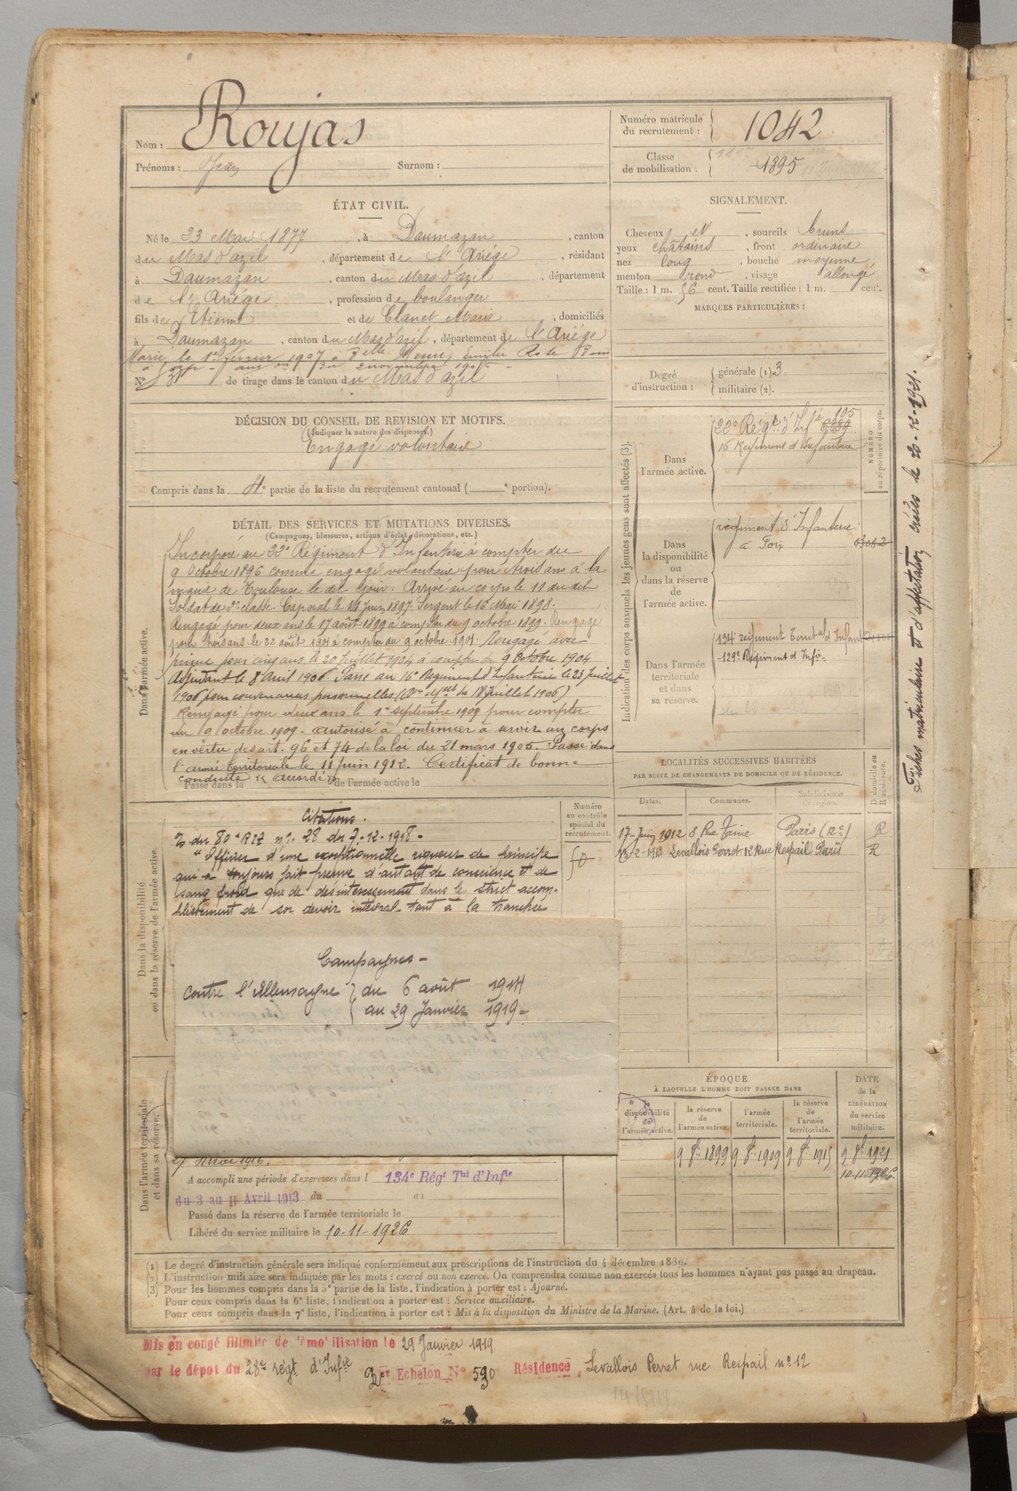 Nom : Roujas
Prénoms : Jean Surnom :
Numéro matricule du recrutement : 1042
Classe de mobilisation : 1895
ÉTAT CIVIL.
Né le 23 Mai 1877, à Daumazan, canton
du Mas d'azil, département de l'Ariége, résidant
à Daumazan, canton du Mas d'azil, département
de l'Ariége, profession de boulanger
fils de Etienne et de Clanet Marie, domiciliés
à Daumazan, canton du Mas d'azil, département de l'Ariége
Marié le 1er février 1907 à Delle
N° 31 de tirage dans le canton du Mas d'azil
SIGNALEMENT.
Cheveux et, sourcils bruns
yeux chatains, front ordinaire
nez long, bouche moyenne
menton rond, visage allongé
Taille : 1 m. 56 cent. Taille rectifiée : 1 m. cent.
MARQUES PARTICULIÈRES :
Degré d'instruction : générale (1) 3
militaire (2).
DÉCISION DU CONSEIL DE REVISION ET MOTIFS.
(Indiquer la nature des dispenses.)
Engagé volontaire
Compris dans la 4e partie de la liste du recrutement cantonal ( portion).
DÉTAIL DES SERVICES ET MUTATIONS DIVERSES.
(Campagnes, blessures, actions d'éclat, décorations, etc.)
Dans l'armée active.
Incorporé au 22e Régiment d'Infanterie à compter du
9 Octobre 1896 comme engagé volontaire pour trois ans à la
mairie de Toulouse le dit jour. Arrivé au corps le 11 du dit
Soldat de 2e classe. Caporal le 14 juin 1897. Sergent le 16 Mai 1898.
Rengagé pour deux ans le 17 août 1899 à compter du 9 octobre 1899. Rengagé
pour trois ans le 22 août 1901 à compter du 9 octobre 1901. Rengagé avec
prime pour cinq ans le 20 Juillet 1904 à compter du 9 Octobre 1904
Adjudant le 8 Avril 1906. Passé au 16e Régiment d'Infanterie le 23 juillet
1906 pour convenances personnelles ( du 18 Juillet 1906)
Rengagé pour deux ans le 1er septembre 1909 pour compter
du 9 octobre 1909. autorisé à continuer à servir au corps
en vertu des art. 96 et 74 de la loi du 21 mars 1905. Passé dans
l'armée territoriale le 11 juin 1912. Certificat de bonne
conduite "accordé"
Passé dans la de l'armée active le
Indication des corps auxquels les jeunes gens sont affectés (3).
NUMÉRO au répertoire du corps.
Dans l'armée active.
22e Régt d'Infie 105
16 Regiment d'Infanterie
Dans la disponibilité ou dans la réserve de l'armée active.
régiment d'Infanterie
à Foix
Dans l'armée territoriale et dans sa réserve.
134 regiment Territ d'Infant
129e Régiment d'Infie
LOCALITÉS SUCCESSIVES HABITÉES
PAR SUITE DE CHANGEMENTS DE DOMICILE OU DE RÉSIDENCE.
Dates. Communes. Subdivisions de région. Domicile ou Résidence.
17 Juin 1912 8 Rue Taine Paris (Rce) R
13-2-1913 Levallois Perret 12 Rue Raspail Paris R
Dans la disponibilité ou dans la réserve de l'armée active.
Numéro au contrôle spécial du recrutement.
Citations.
O du 80e RIT n° 28 du 7-12-1918 -
"Officier d'une exceptionnelle vigueur de principe
qui a toujours fait preuve d'autant de conscience et de
sang froid que de désintéressement dans le strict accom-
plissement de son devoir intégral tant à la tranchée
Campagnes -
contre l'Allemagne du 6 août 1914
au 29 Janvier 1919 -
Dans l'armée territoriale et dans sa réserve.
27 Mai 1916.
A accompli une période d'exercices dans l 134e Régt Tal d'Infie
du 3 au 11 Avril 1913 du au
Passé dans la réserve de l'armée territoriale le
Libéré du service militaire le 10-11-1926
ÉPOQUE
À LAQUELLE L'HOMME DOIT PASSER DANS
DATE de la LIBÉRATION du service militaire.
la disponibilité de l'armée active.
la réserve de l'armée active.
l'armée territoriale.
la réserve de l'armée territoriale.
9 8bre 1899 9 8bre 1909 9 8bre 1915 9 8bre 1921
10-11-1926.
(1) Le degré d'instruction générale sera indiqué conformément aux prescriptions de l'instruction du 4 décembre 1889.
(2) L'instruction militaire sera indiquée par les mots : exercé ou non exercé. On comprendra comme non exercés tous les hommes n'ayant pas passé au drapeau.
(3) Pour les hommes compris dans la 5e partie de la liste, l'indication à porter est : Ajourné.
Pour ceux compris dans la 6e liste, l'indication à porter est : Service auxiliaire.
Pour ceux compris dans la 7e liste, l'indication à porter est : Mis à la disposition du Ministre de la Marine. (Art. 4 de la loi.)
Mis en congé illimité de démobilisation le 29 Janvier 1919
par le dépôt du 28me régt d'Infie Echelon N° 590 Résidence, Levallois Perret rue Raspail n° 12
Fiches matriculaire et d'affectation créées le 20-12-1921.